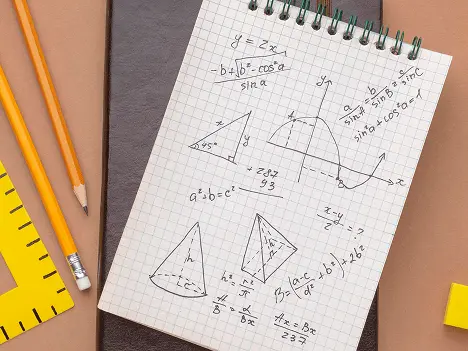 y = 2x
-b+√b²-cos²a
sin a
a/sinA = b/sinB = c/sinC
sin²a + cos²a = 1
y
A
x
y
45°
B
x
+287
93
a²+b=c²
x-y/2 = ?
h
h
h² = r²/π
B=(a-c/d² + b²)+2b²
A/B = d/Bx
Ax = Bx
237